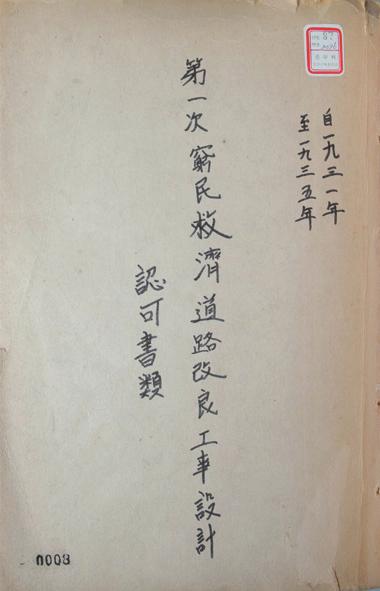 自一九三一年
至一九三五年
第一次窮民救濟道路改良工事設計
認可書類
0003